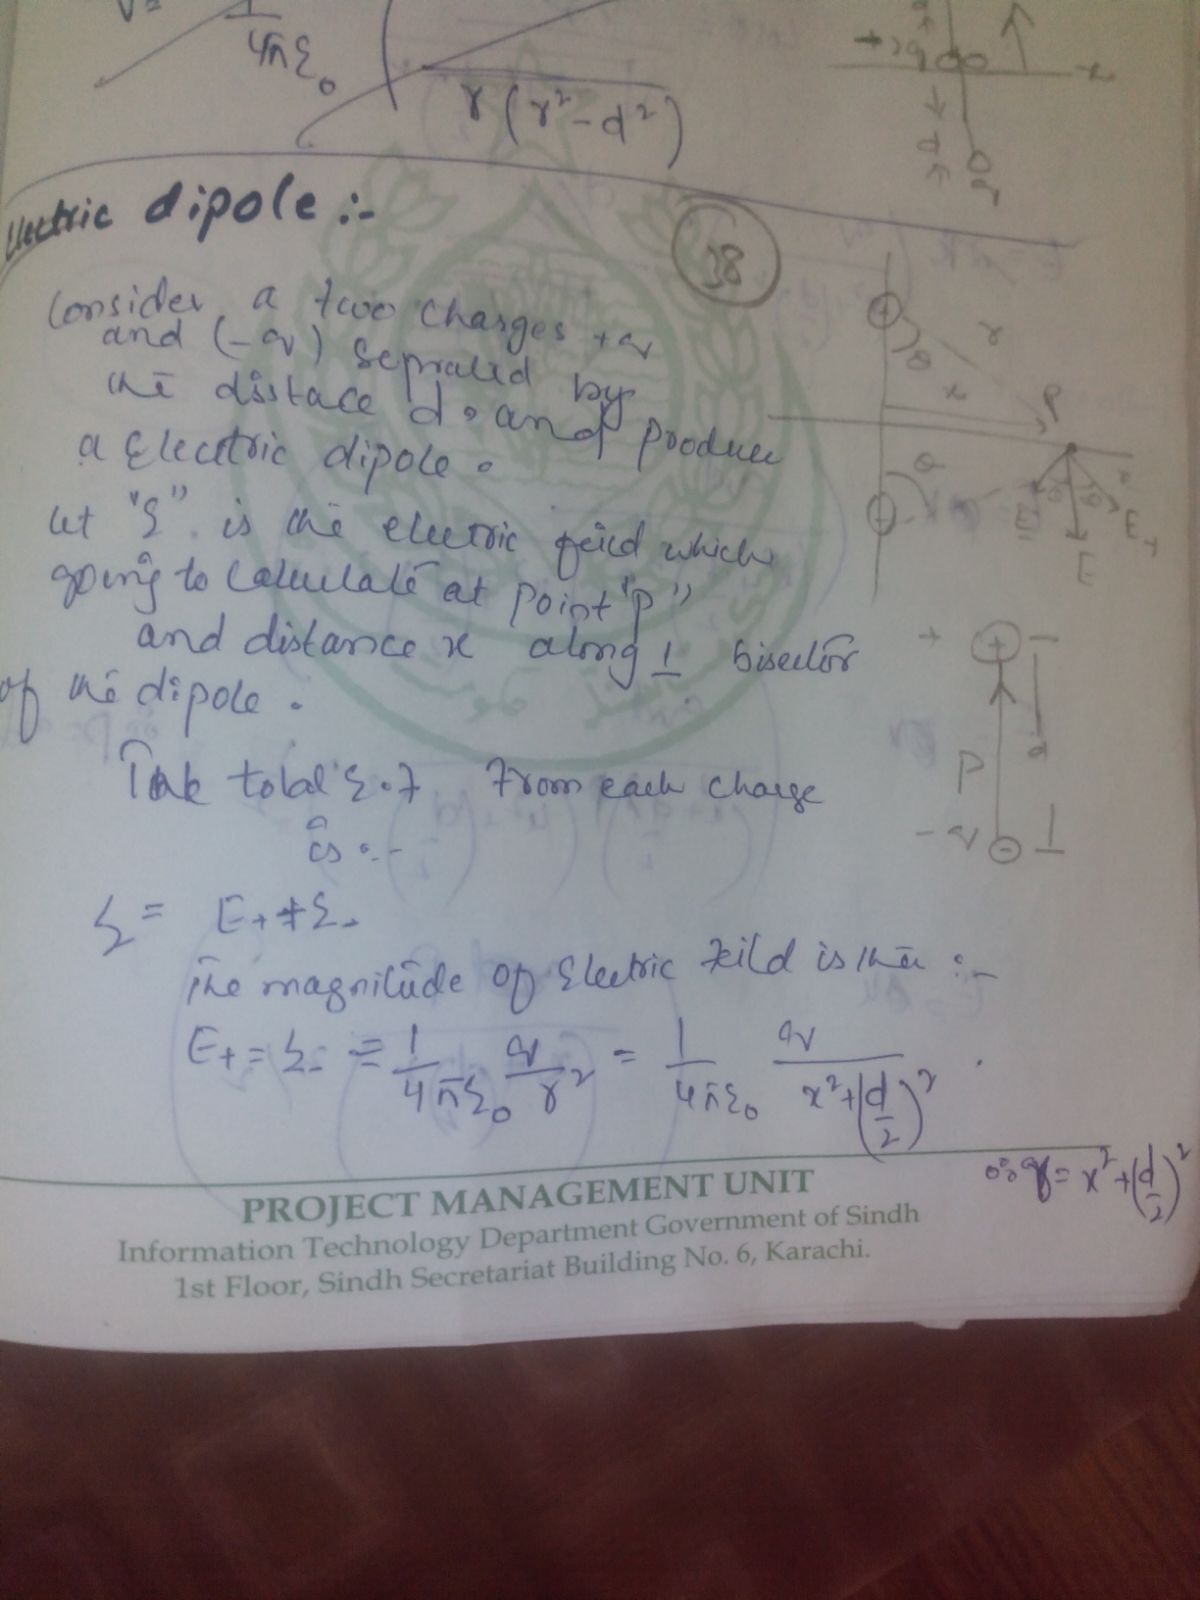 V =
1
4πε₀
r(r²-d²)
+2q
x
Electric dipole :-
38
Consider a two charges +q
and (-q) seprated by
the distace d. and produce
a Electric dipole.
let "ε" is the electric feild which
going to calculate at point "p"
and distance x along ⊥ bisector
of the dipole.
Tak total ε.f From each charge
is :-
ε = E₊ + ε₋
The magnitude of Electric feild is then :-
E₊ = ε₋ = 1/4πε₀ q/r² = 1/4πε₀ q/x²+(d/2)²
∴ r = x²+(d/2)²
+
θ
r
x
P
θ
-
E₋
θ
θ
E₊
E
+
+
d
P
-q
-
PROJECT MANAGEMENT UNIT
Information Technology Department Government of Sindh
1st Floor, Sindh Secretariat Building No. 6, Karachi.